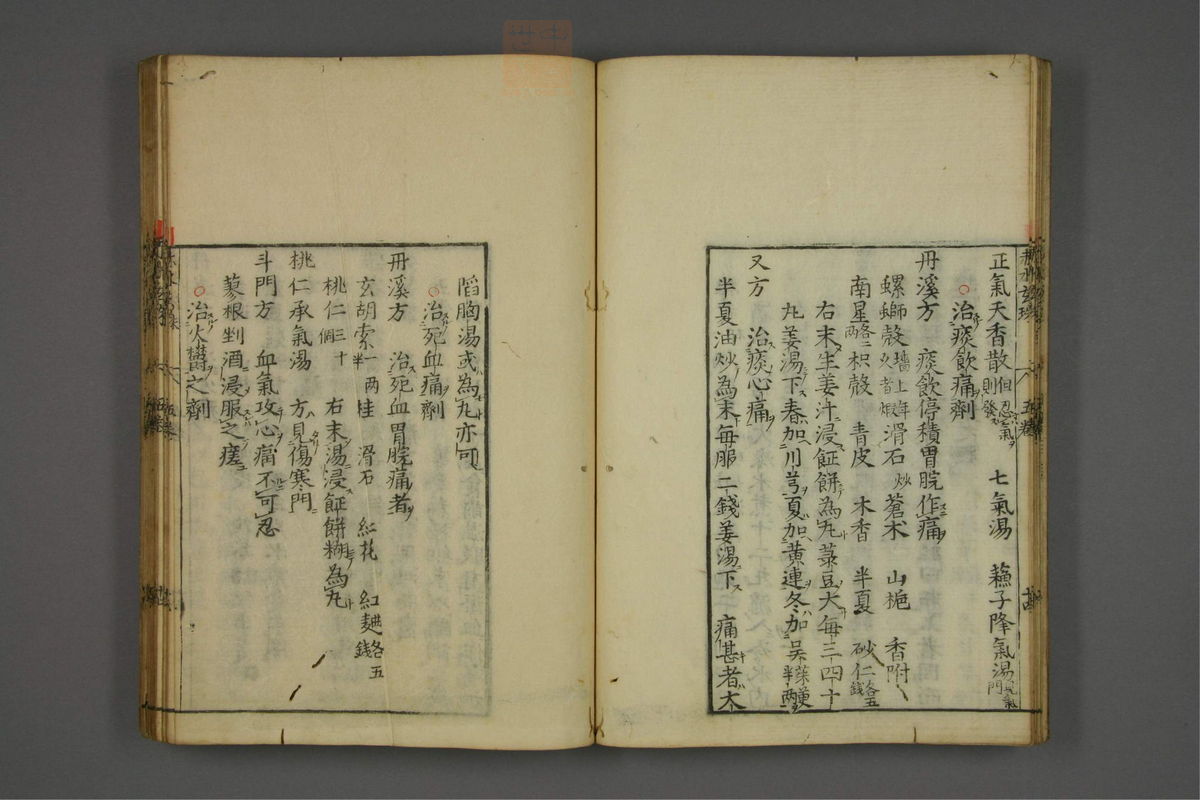 正氣天香散但忍氣則發 七氣湯 蘓子降氣湯
治痰飲痛劑
丹溪方 痰飲停積胃脘作痛
螺螄殼墻上年久者煆 滑石炒 蒼朮 山栀 香附
南星各二兩 枳殼 青皮 木香 半夏 砂仁各五錢
右末生姜汁浸飪餅為丸菉豆大每三四十
丸姜湯下春加川芎夏加黄連冬加吴茱萸半兩
又方 治痰心痛
半夏油炒為末毎服二錢姜湯下 痛甚者大
䧟胸湯或為丸亦可
治死血痛劑
丹溪方 治死血胃脘痛者
玄胡索一兩半 桂 滑石 紅花 紅麯各五錢
桃仁三十個 右末湯浸飪餅糊為丸
桃仁承氣湯 方見傷寒門
斗門方 血氣攻心痛不可忍
蓼根剉酒浸服之瘥
治火欝之劑